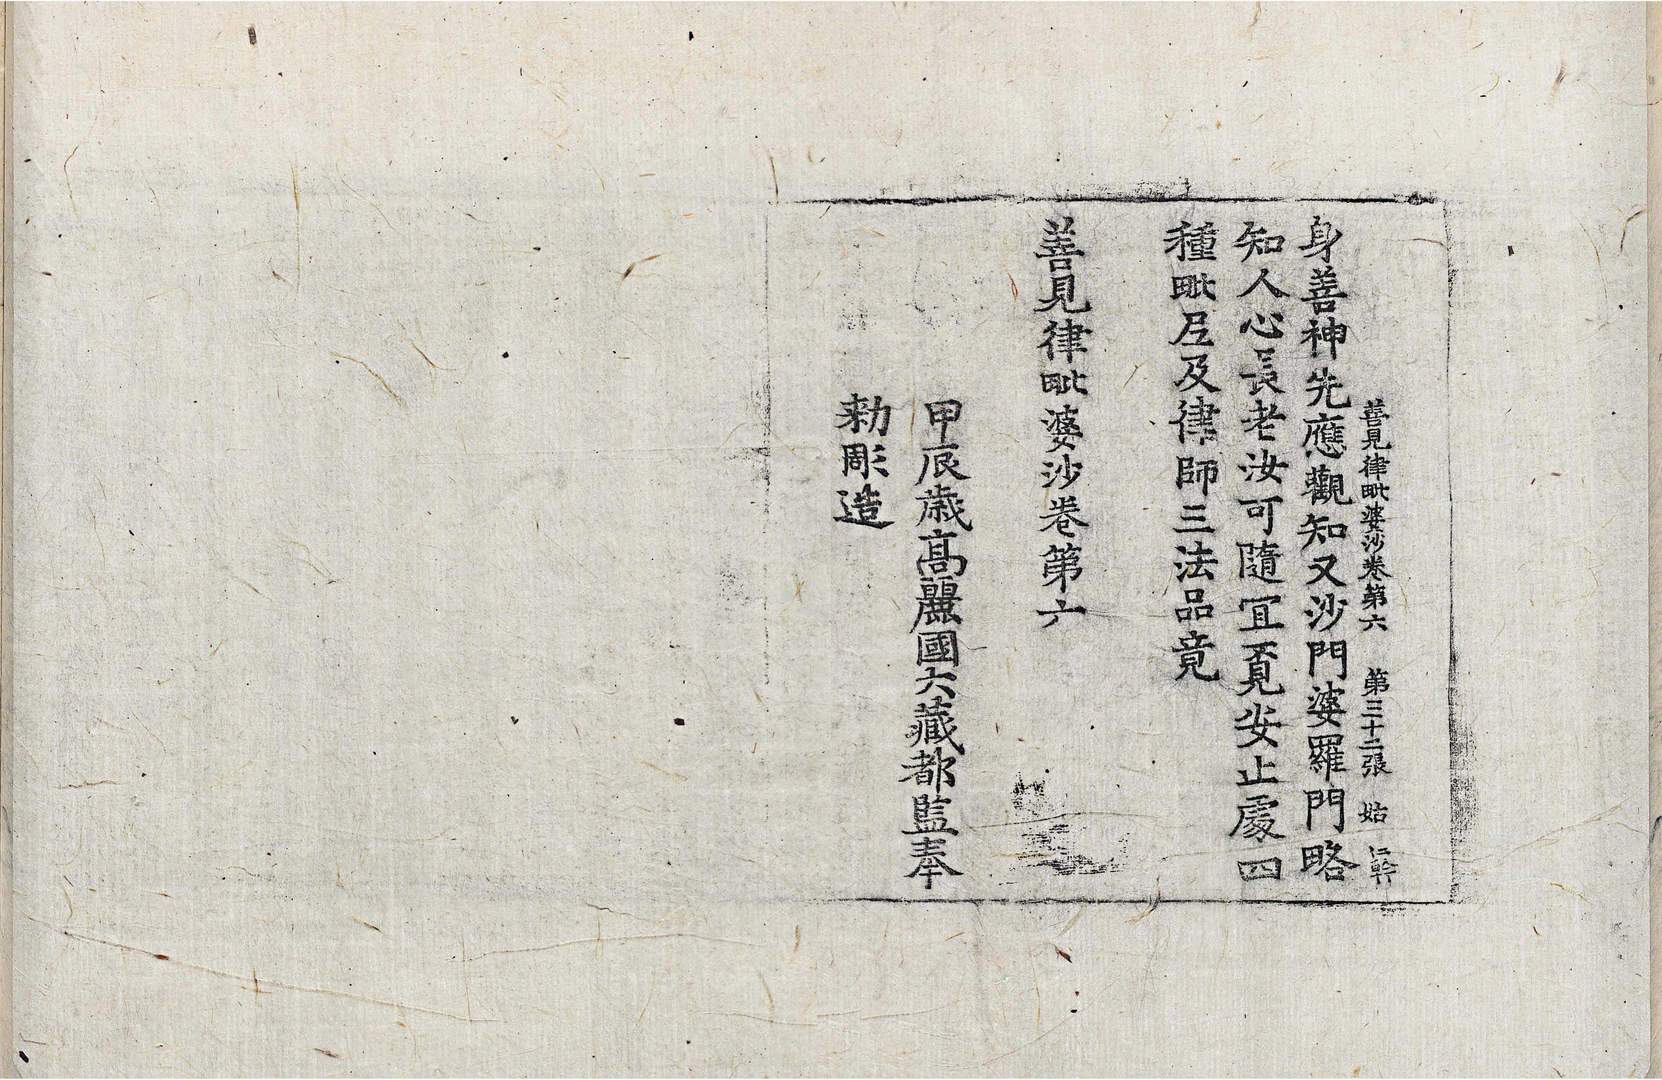 善見律毗婆沙卷第六 第三十二張 姑 仁幹
身善神先應觀知又沙門婆羅門略
知人心長老汝可隨冝覓安止處四
種毗𡰱及律師三法品竟
善見律毗婆沙卷第六
甲辰歳高麗國大藏都監奉
勑彫造